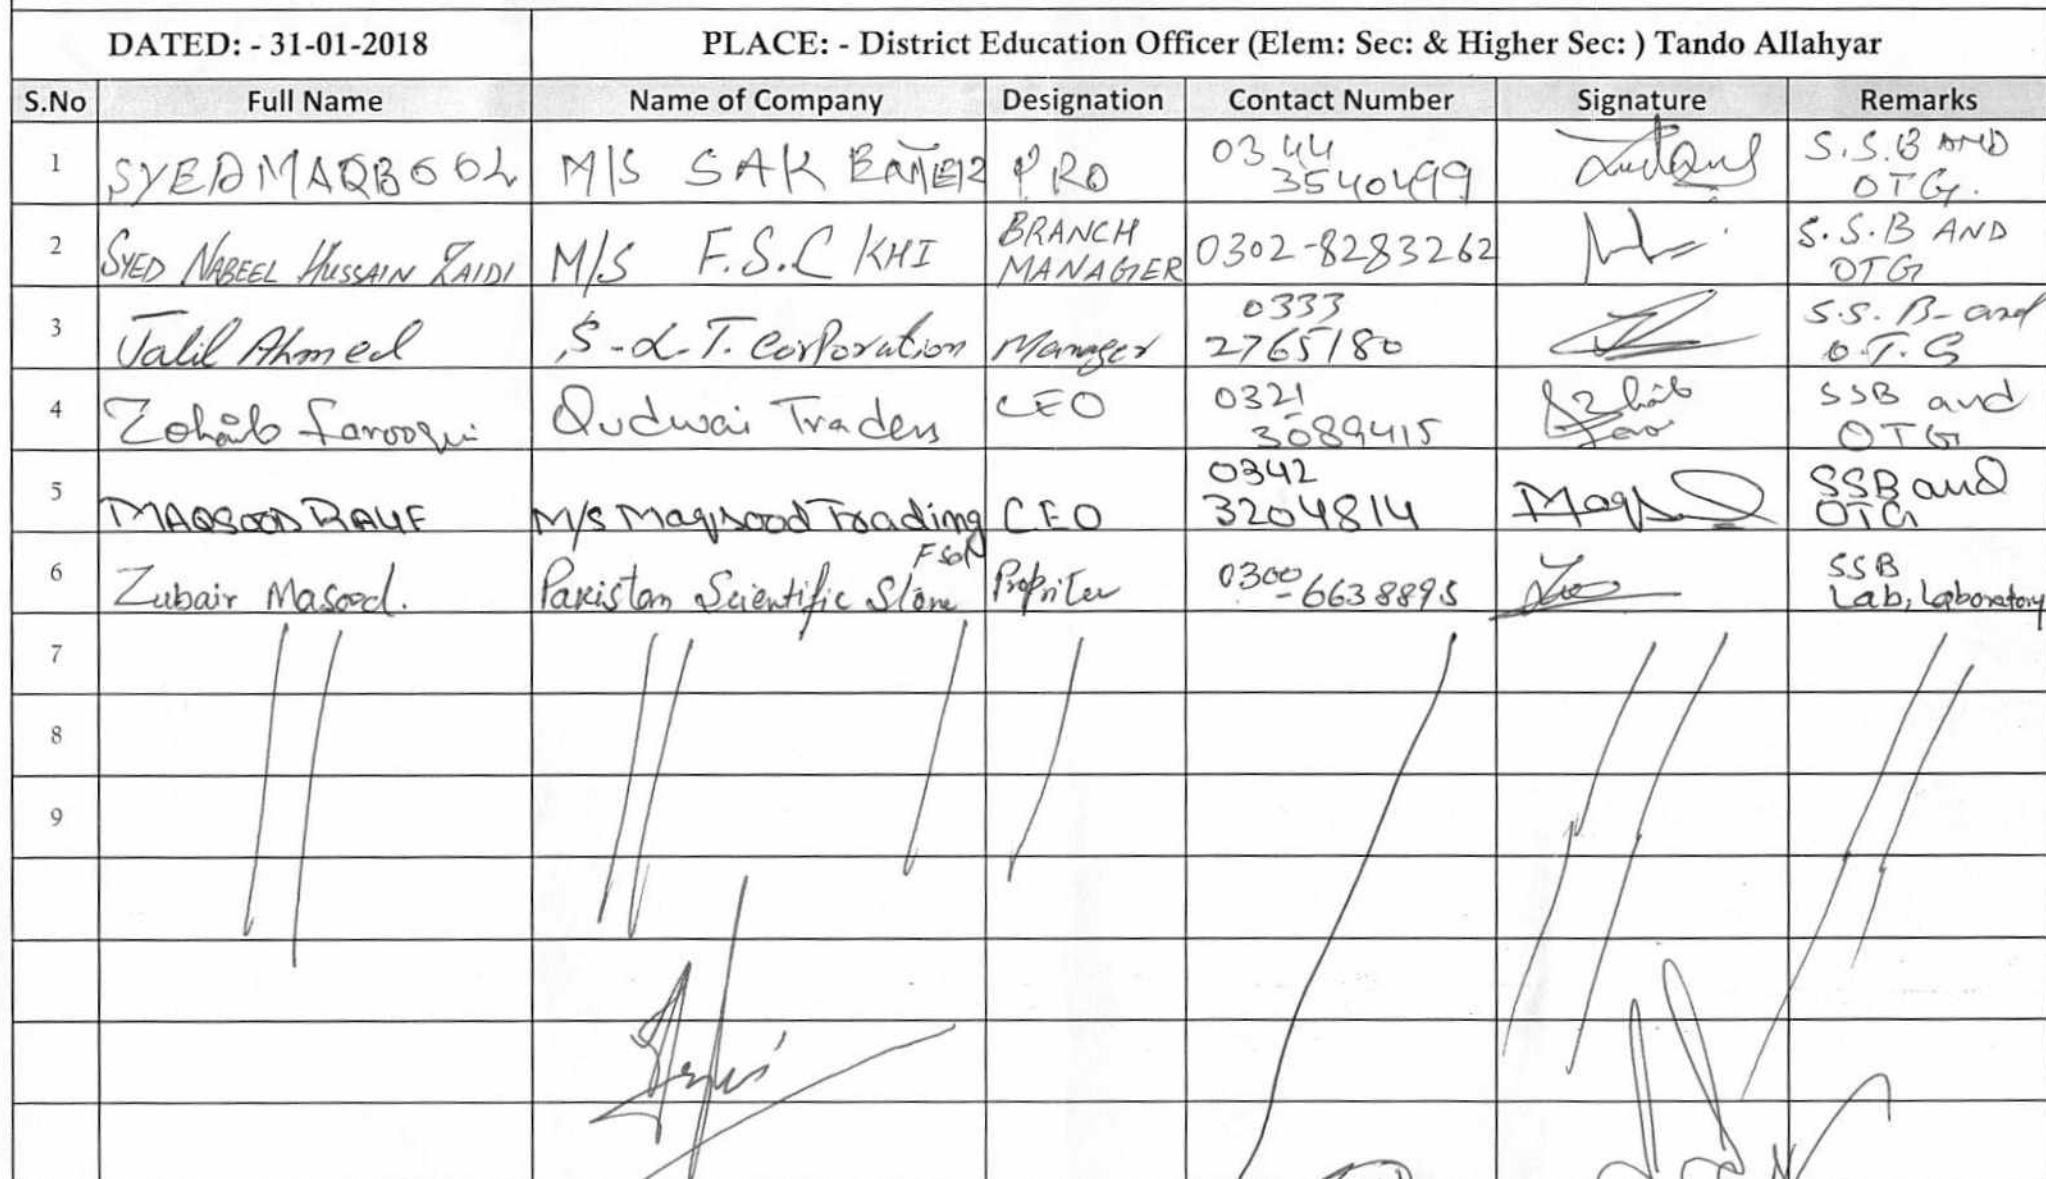 DATED: - 31-01-2018 PLACE: - District Education Officer (Elem: Sec: & Higher Sec: ) Tando Allahyar
S.No Full Name Name of Company Designation Contact Number Signature Remarks
1 SYED MAQBOOL M/S SAK PRO 0344 3540499 S.S.B AND OTG.
2 SYED NABEEL HUSSAIN ZAIDI M/S F.S.C KHI BRANCH MANAGER 0302-8283262 S.S.B AND OTG
3 Jalil Ahmed S-L-T. Corporation Manager 0333 2765180 S.S. B- and O.T.G
4 Zohaib Farooqui Qudwai Traders CEO 0321 3089415 Zohaib SSB and OTG
5 MAQSOOD RAUF M/S Maqsood Trading CEO 0342 3204814 SSB and OTG
6 Zubair Masood. Pakistan Scientific Store 0300-6638895 SSB Lab, Laboratory
7
8
9